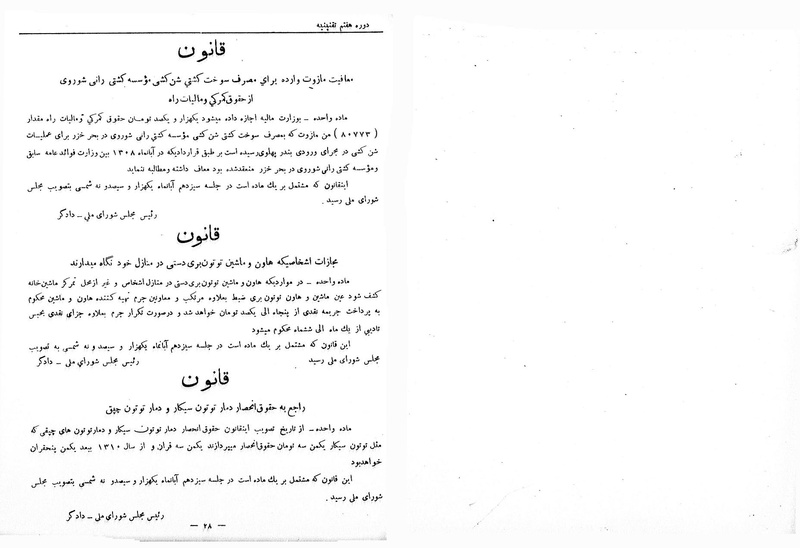 دوره هفتم تقنینیه
قانون
معافیت مازوت وارده برای مصرف سوخت کشتی شن کشی مؤسسه کشتی رانی شوروی
از حقوق گمرکی و مالیات راه
ماده واحده ـ بوزارت مالیه اجازه داده میشود یکهزار و یکصد تومان حقوق گمرکی و مالیات راه مقدار
( ۸۰۷۷۳ ) من مازوت که بمصرف سوخت کشتی شن کشی مؤسسه کشتی رانی شوروی در بحر خزر برای عملیات
شن کشی در مجرای ورودی بندر پهلوی رسیده است بر طبق قراردادیکه در آبانماه ۱۳۰۸ بین وزارت فوائد عامه سابق
و مؤسسه کشتی رانی شوروی در بحر خزر منعقد شده بود معاف داشته و مطالبه ننماید
اینقانون که مشتمل بر یك ماده است در جلسه سیزدهم آبانماه یکهزار و سیصد و نه شمسی بتصویب مجلس
شورای ملی رسید .
رئیس مجلس شورای ملی ـ دادگر
قانون
مجازات اشخاصیکه هاون و ماشین توتون بری دستی در منازل خود نگاه میدارند
ماده واحده ـ در مواردیکه هاون و ماشین توتون بری دستی در منازل اشخاص و غیر از محل تمرکز ماشین خانه
کشف شود عین ماشین و هاون توتون بری ضبط بعلاوه مرتکب و معاونین جرم تهیه کننده هاون و ماشین محکوم
به پرداخت جریمه نقدی از پنجاه الی یکصد تومان خواهد شد و درصورت تکرار جرم بعلاوه جزای نقدی بحبس
تادیبی از یك ماه الی ششماه محکوم میشود
این قانون که مشتمل بر یك ماده است در جلسه سیزدهم آبانماه یکهزار و سیصد و نه شمسی به تصویب
مجلس شورای ملی رسید رئیس مجلس شورای ملی ـ دادگر
قانون
راجع به حقوق انحصار دمار توتون سیکار و دمار توتون چپق
ماده واحده ـ از تاریخ تصویب اینقانون حقوق انحصار دمار توتون سیکار و دمار توتون های چپقی که
مثل توتون سیکار یکمن سه تومان حقوق انحصار میپردازند یکمن سه قران و از سال ۱۳۱۰ ببعد یکمن پنجقران
خواهد بود
این قانون که مشتمل بر یك ماده است در جلسه سیزدهم آبانماه یکهزار و سیصد و نه شمسی بتصویب مجلس
شورای ملی رسید .
رئیس مجلس شورای ملی ـ دادگر
— ۲۸ —